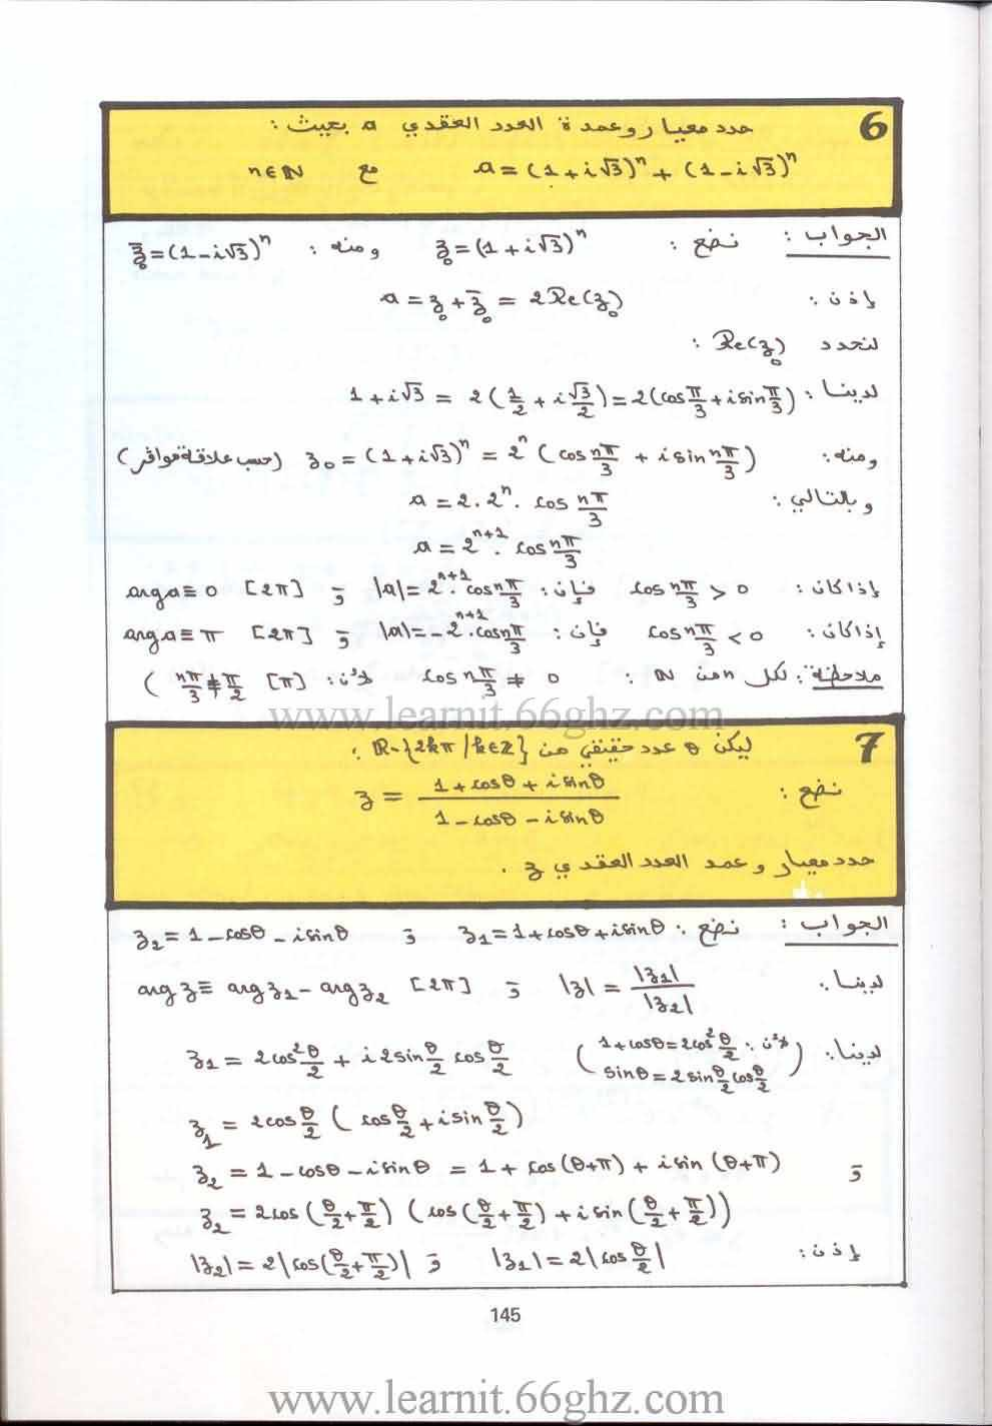 6
حدد معيار وعمدة العدد العقدي a بحيث :
a = (1+i√3)ⁿ + (1-i√3)ⁿ مع n∈ℕ
الجواب : نضع : z₀ = (1+i√3)ⁿ ومنه : z̄₀ = (1-i√3)ⁿ
إذن : a = z₀ + z̄₀ = 2Re(z₀)
لنحدد Re(z₀) :
لدينا : 1+i√3 = 2(1/2 + i√3/2) = 2(cos π/3 + i sin π/3)
ومنه : z₀ = (1+i√3)ⁿ = 2ⁿ (cos nπ/3 + i sin nπ/3) (حسب علاقة موافر)
وبالتالي : a = 2.2ⁿ. cos nπ/3
a = 2ⁿ⁺¹. cos nπ/3
إذا كان : cos nπ/3 > 0 فإن : |a| = 2ⁿ⁺¹. cos nπ/3 و arg a ≡ 0 [2π]
إذا كان : cos nπ/3 < 0 فإن : |a| = -2ⁿ⁺¹. cos nπ/3 و arg a ≡ π [2π]
ملاحظة : لكل n من ℕ : cos nπ/3 ≠ 0 لأن : ( nπ/3 ≢ π/2 [π] )
www.learnit.66ghz.com
7
ليكن θ عدد حقيقي من ℝ-{2kπ / k∈ℤ} :
نضع : z = (1+cosθ+i sinθ)/(1-cosθ-i sinθ)
حدد معيار و عمد العدد العقدي z .
الجواب : نضع : z₁ = 1+cosθ+i sinθ و z₂ = 1-cosθ-i sinθ
لدينا : |z| = |z₁|/|z₂| و arg z ≡ arg z₁ - arg z₂ [2π]
لدينا : z₁ = 2cos² θ/2 + i 2sin θ/2 cos θ/2 (لأن : 1+cosθ = 2cos² θ/2
sinθ = 2 sin θ/2 cos θ/2)
z₁ = 2cos θ/2 ( cos θ/2 + i sin θ/2 )
و z₂ = 1-cosθ-i sinθ = 1+cos(θ+π)+i sin(θ+π)
z₂ = 2cos(θ/2+π/2) (cos(θ/2+π/2)+i sin(θ/2+π/2))
إذن : |z₁| = 2|cos θ/2| و |z₂| = 2|cos(θ/2+π/2)|
145
www.learnit.66ghz.com